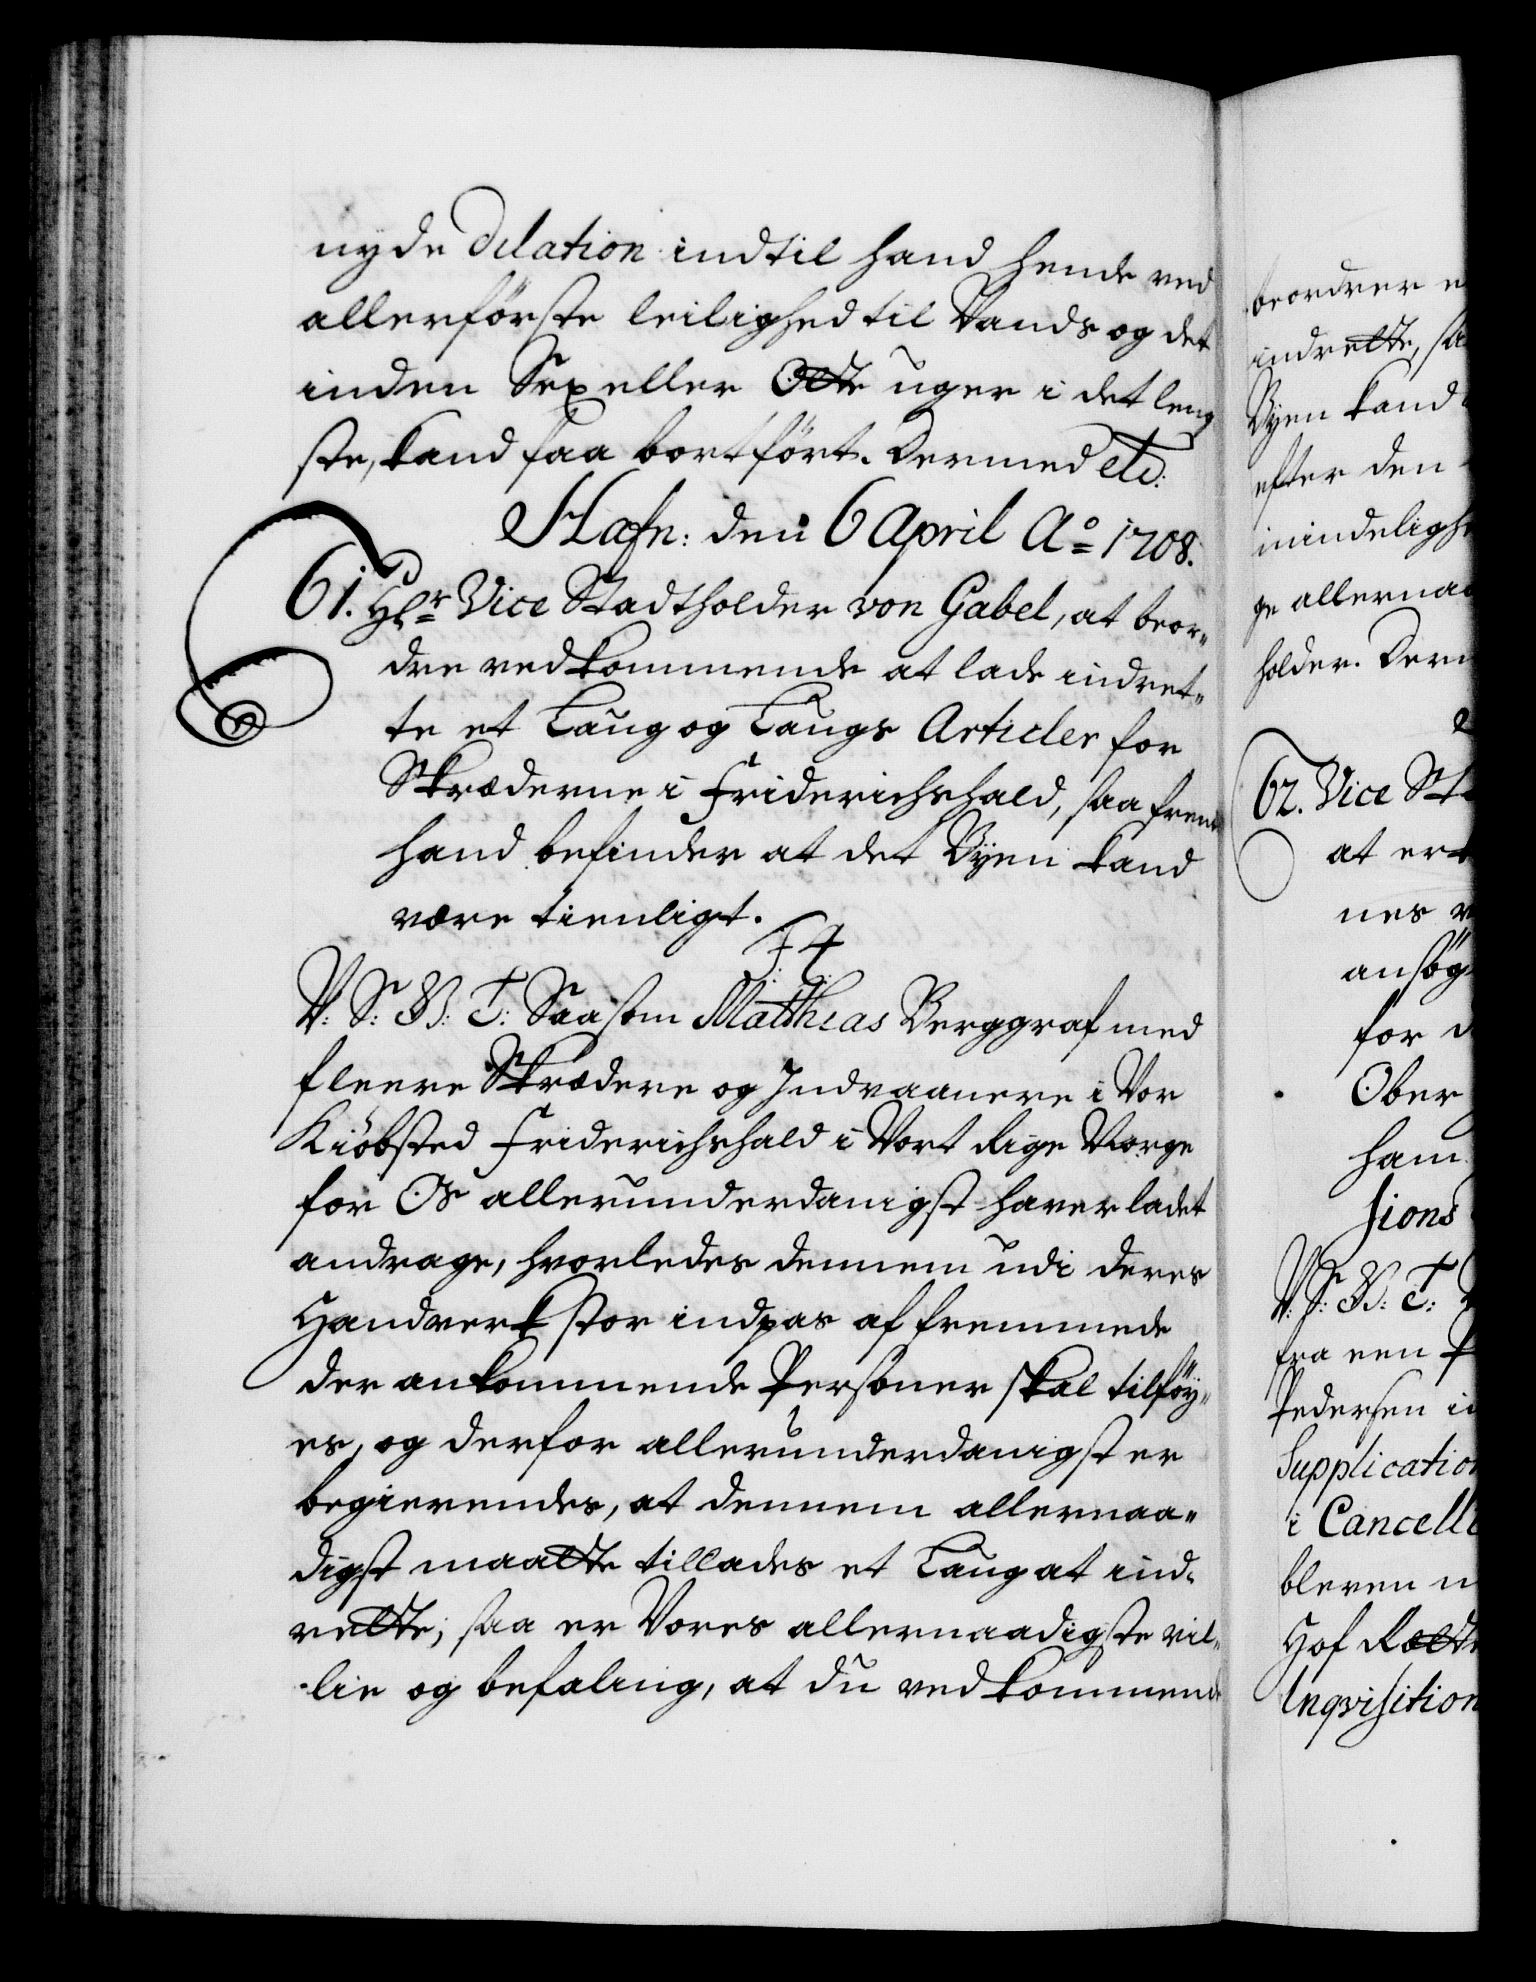 nyde Dilation indtil hand hende ved
allerförste leilighed til Vands og det
inden Sex eller Otte uger i det leng
ste, kand faa bortfört. Dermed etc:
Hafn: den 6 April Aº 1708.
61. Hr Vice Stadtholder von Gabel, at beor-
dre vedkommende at lade indret-
te et Laug og Laugs Articler for
Skræderne i Friderichshald, saa frem
hand befinder at det Byen kand
være tienligt.
F4
V: S: G: T: Saasom Matthias Berggraf med
fleere Skrædere og Indvaanere i Vor
Kiöbsted Friderichshald i Vort Rige Norge
for Os allerunderdanigst haver ladet
andrage, hvorledes dennem udi deres
Handverk stor indpas af fremmede
der ankommende Personer skal tilföy-
es, og derfor allerunderdanigst er
begierendes, at dennem allernaa-
digst maatte tillades et Laug at ind-
rette; saa er Vores allernaadigste vil-
lie og befaling, at du vedkommende
beordrer
indrette, saa
Byen kand
efter den
mindelighe
ge allernaa
holder. Derm
62. Vice Sta
at er
nes
ansög
for d
Ober
ham
sions
V: S: G: T:
fra een P
Pedersen i
Supplication
i Cancelli
bleven
Hof Rætt
Inqvisition